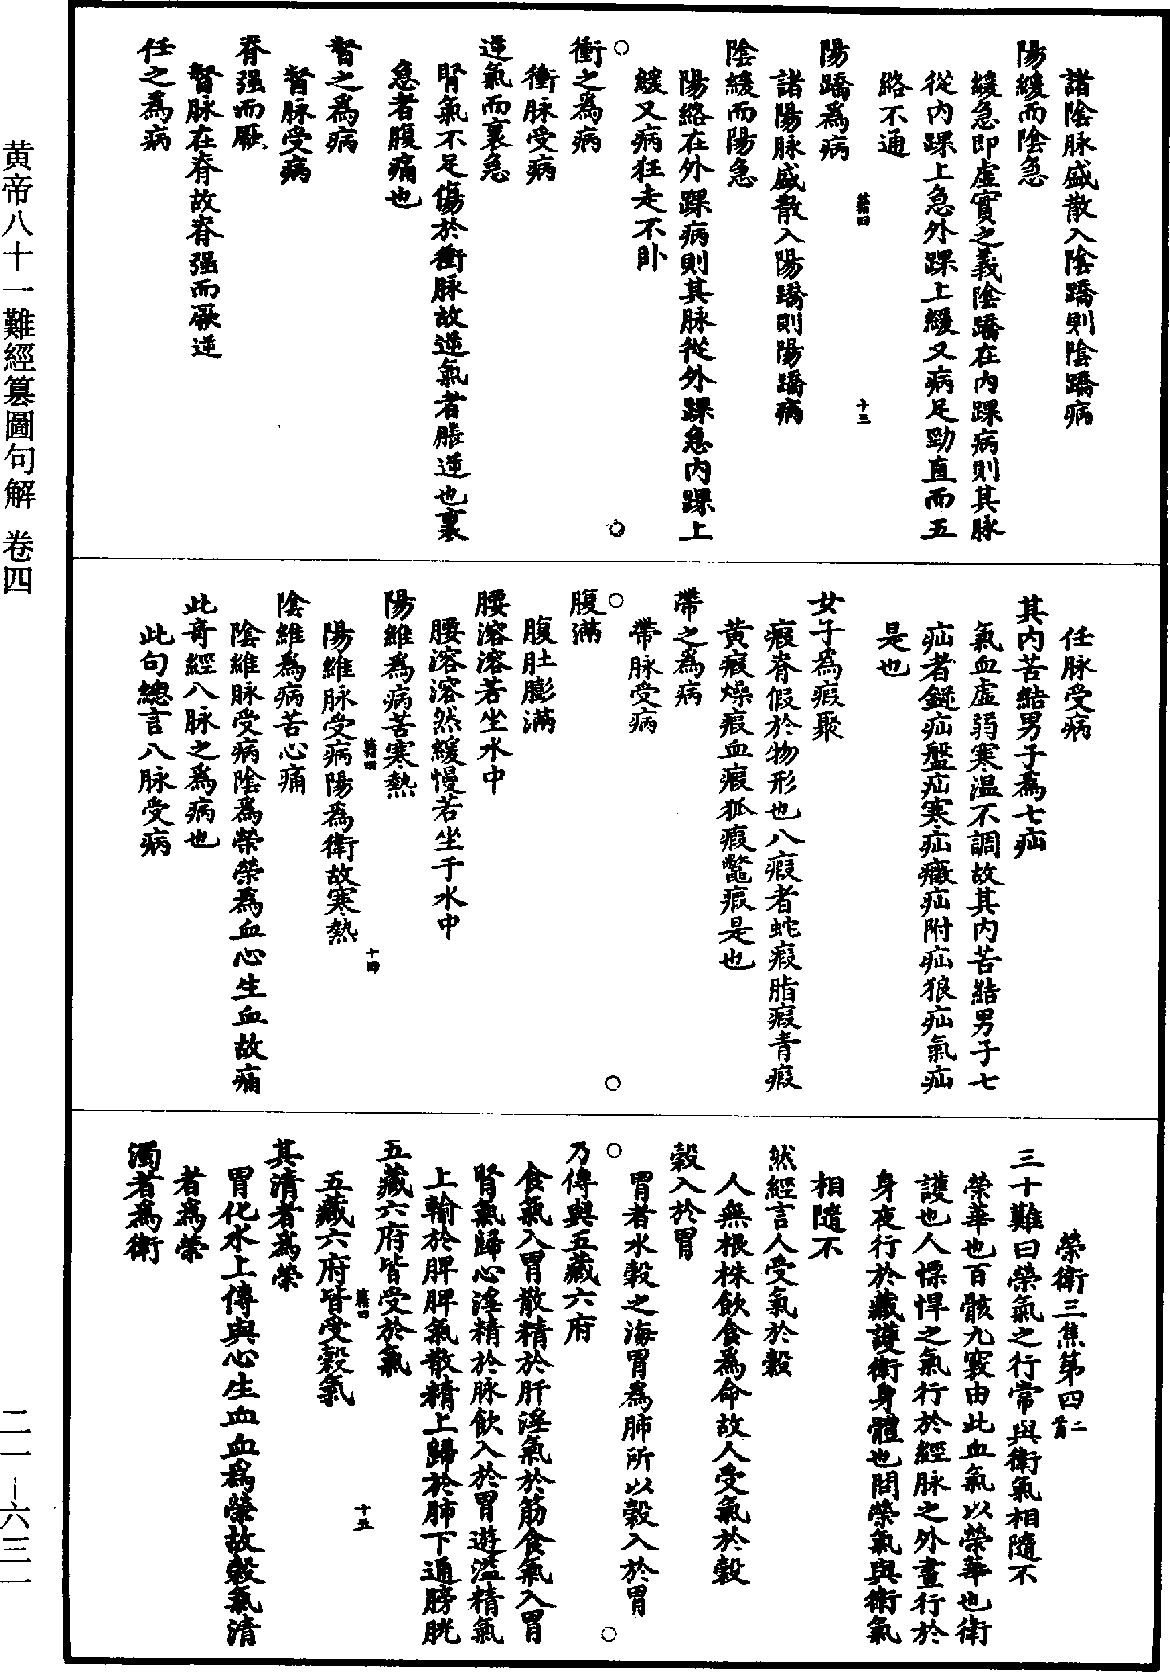 諸陰脉盛散入陰蹻則陰蹻病
陽緩而陰急
緩急即虛實之義陰蹻在内踝病則其脉
從内踝上急外踝上緩又病足勁直而五
絡不通
難四
十三
陽蹻爲病
諸陽脉盛散入陽蹻則陽蹻病
陰緩而陽急
陽絡在外踝病則其脉從外踝急内踝上
緩又病狂走不卧
衝之爲病
衝脉受病
逆氣而裏急
腎氣不足傷於衝脉故逆氣者脹逆也裏
急者腹痛也
督之爲病
督脉受病
脊强而厥
督脉在脊故脊强而厥逆
任之爲病
任脉受病
其内苦結男子爲七疝
氣血虛弱寒温不調故其内苦結男子七
疝者㿗疝盤疝寒疝癥疝附疝狼疝氣疝
是也
女子爲瘕聚
瘕者假於物形也八瘕者蛇瘕脂瘕青瘕
黄瘕燥瘕血瘕狐瘕鼈瘕是也
帶之爲病
帶脉受病
腹滿
腹肚膨滿
腰溶溶若坐水中
腰溶溶然緩慢若坐于水中
陽維爲病苦寒熱
難四
十四
陽維脉受病陽爲衛故寒熱
陰維爲病苦心痛
陰維脉受病陰爲榮榮爲血心生血故痛
此奇經八脉之爲病也
此句總言八脉受病
榮衛三焦第四二首
三十難曰榮氣之行常與衛氣相隨不
榮華也百骸九竅由此血氣以榮華也衛
護也人慓悍之氣行於經脉之外晝行於
身夜行於藏護衛身體也問榮氣與衛氣
相隨不
然經言人受氣於穀
人無根株飲食爲命故人受氣於穀
穀入於胃
胃者水穀之海胃爲肺所以穀入於胃
乃傳與五藏六府
食氣入胃散精於肝淫氣於筋食氣入胃
腎氣歸心淫精於脉飲入於胃遊溢精氣
上輸於脾脾氣散精上歸於肺下通膀胱
五藏六府皆受於氣
難四
十五
五藏六府皆受穀氣
其清者爲榮
胃化水上傳與心生血血爲榮故穀氣清
者爲榮
濁者爲衛
黄帝八十一難經纂圖句解　卷四
二一－六三一